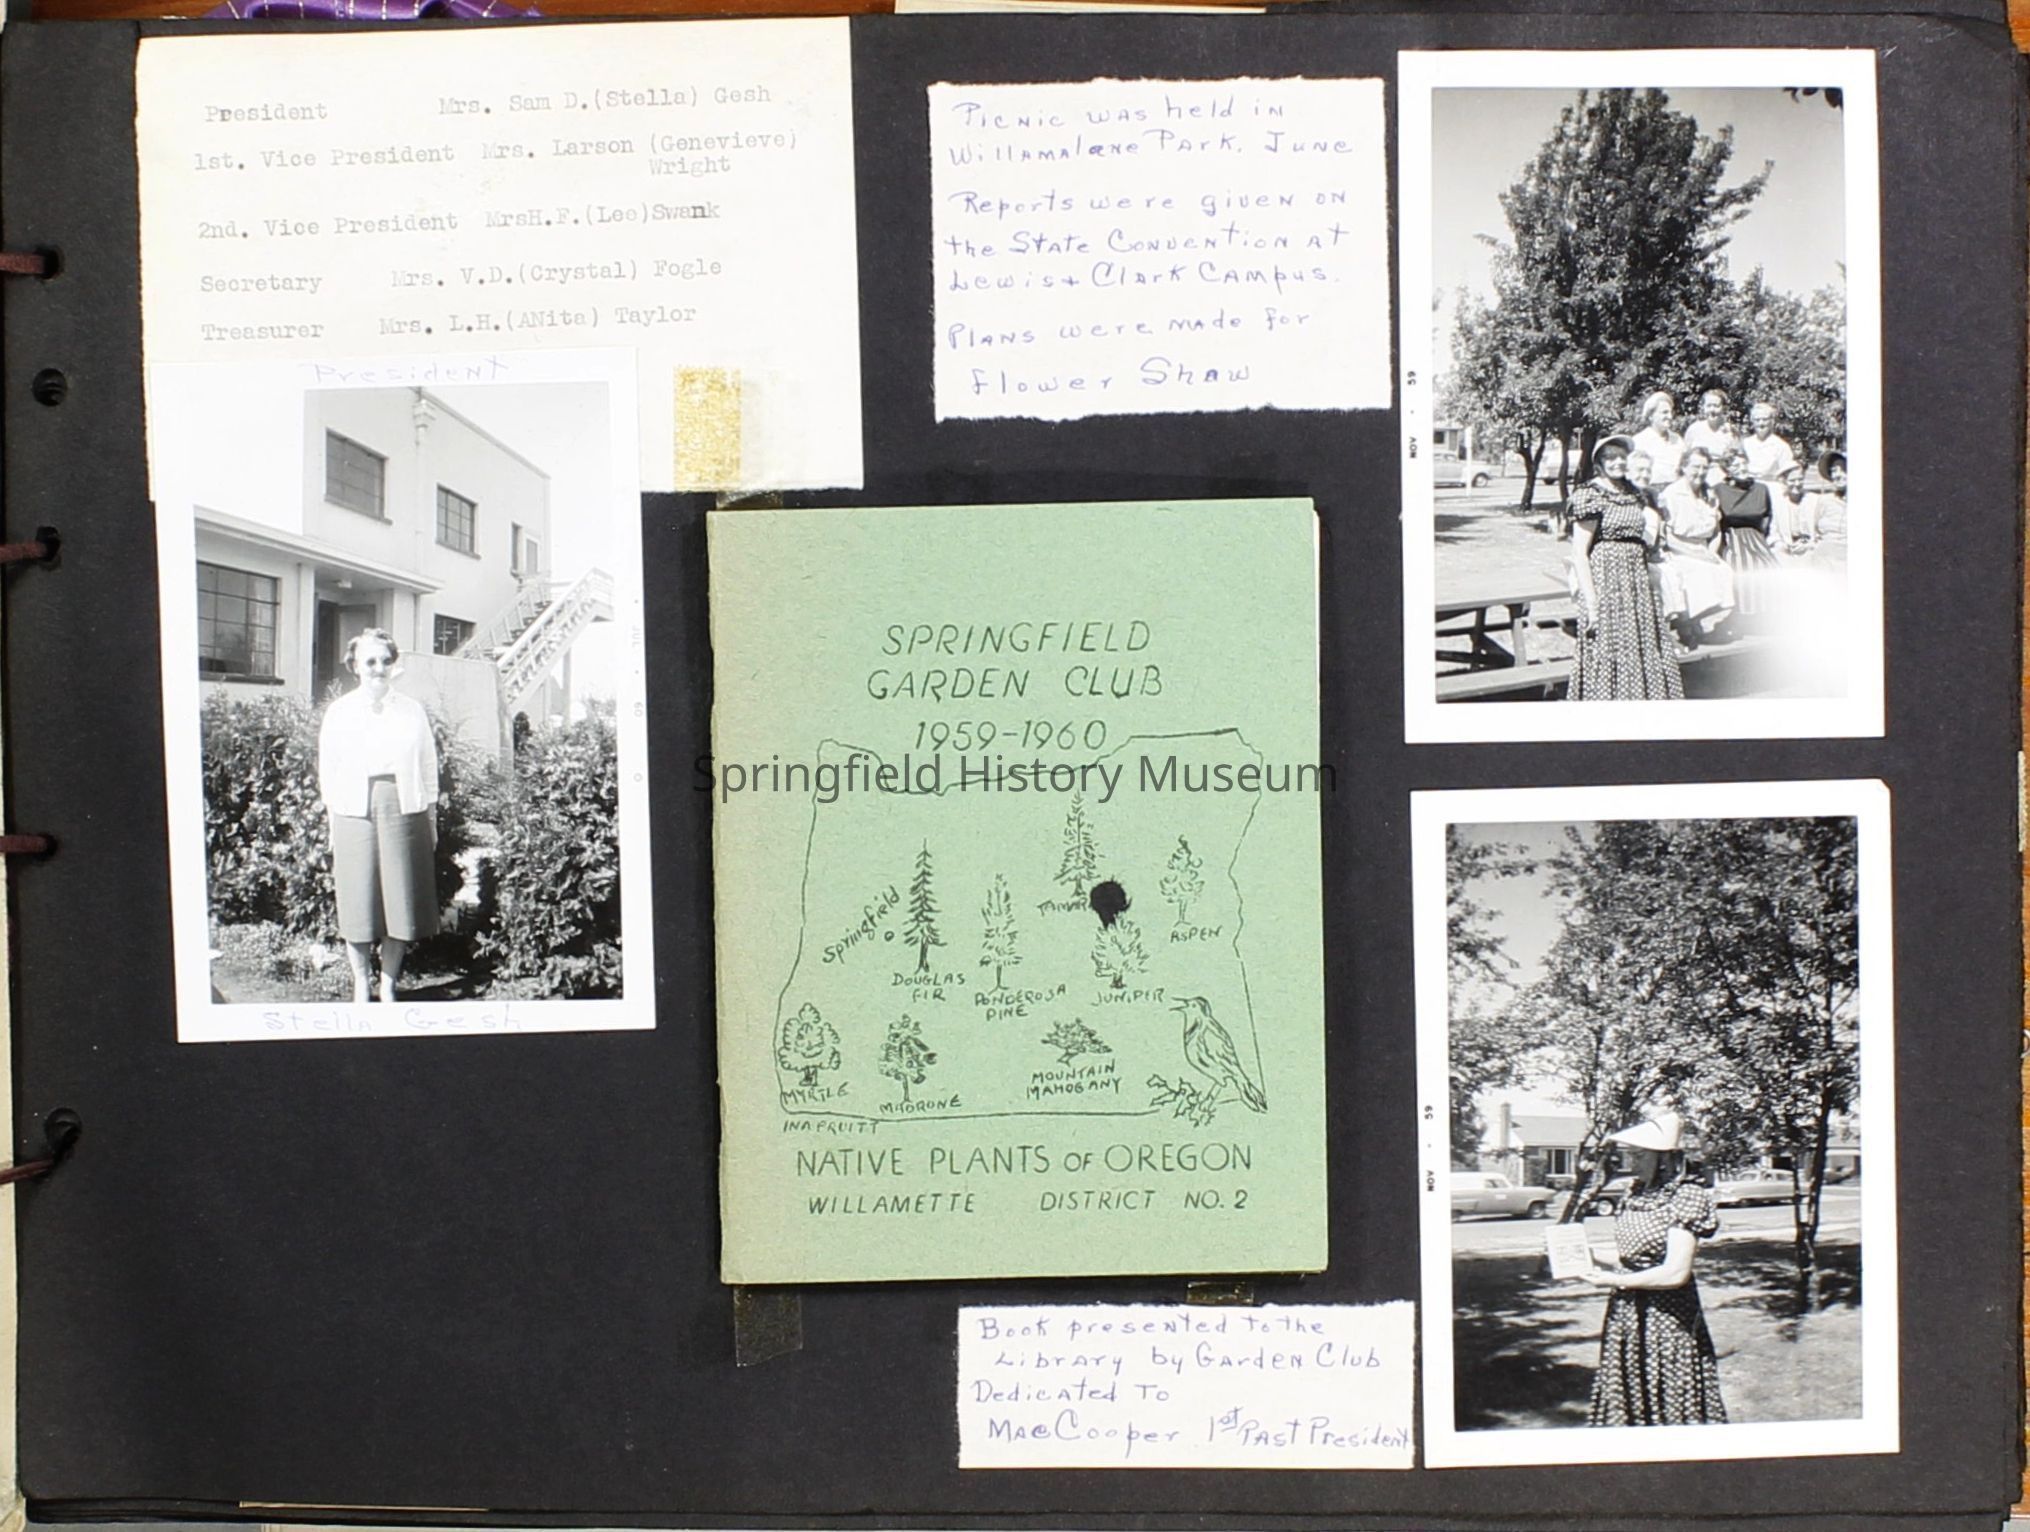 President Mrs. Sam D.(Stella) Gesh
1st. Vice President Mrs. Larson (Genevieve)
Wright
2nd. Vice President MrsH.F.(Lee)Swank
Secretary Mrs. V.D.(Crystal) Fogle
Treasurer Mrs. L.H.(ANita) Taylor
President
JUL • 60
Stella Gesh
Picnic was held in
Willamalane Park. June
Reports were given on
the State Convention at
Lewis + Clark Campus.
Plans were made for
Flower Show
NOV • 59
SPRINGFIELD
GARDEN CLUB
1959-1960
Springfield History Museum
Springfield
DOUGLAS
FIR
PONDEROSA
PINE
JUNIPER
ASPEN
MYRTLE
MADRONE
MOUNTAIN
MAHOGANY
INA PRUITT
NATIVE PLANTS OF OREGON
WILLAMETTE DISTRICT NO. 2
Book presented to the
Library by Garden Club
Dedicated To
Mae Cooper 1st Past President
NOV • 59